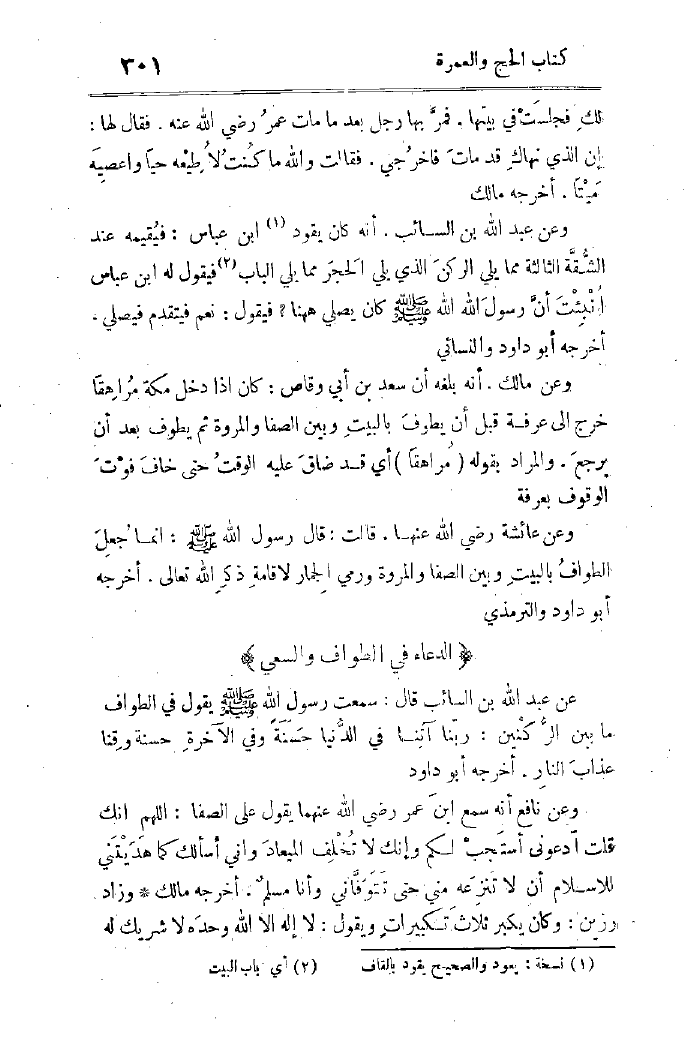 كتاب الحج والعمرة ٣٠١
لكِ فجلسَتْ في بيتها . فمرَّ بها رجل بعد ما مات عمرُ رضي الله عنه . فقال لها :
إن الذي نهاكِ قد ماتَ فاخرُجي . فقالت والله ما كنتُ لأُطيعه حياً واعصيَه
مَيْتاً . أخرجه مالك
وعن عبد الله بن السائب . أنه كان يقود (١) ابن عباس : فيُقيمه عند
الشُّقَّة الثالثة مما يلي الركنَ الذي يلي الحجَر مما يلي الباب(٢)فيقول له ابن عباس
أُنْبِئْتَ أنَّ رسولَ الله الله ﷺ كان يصلي ههنا ? فيقول : نعم فيتقدم فيصلي .
أخرجه أبو داود والنسائي
وعن مالك . أنه بلغه أن سعد بن أبي وقاص : كان اذا دخل مكة مُراهِقاً
خرج الى عرفة قبل أن يطوفَ بالبيتِ وبين الصفا والمروة ثم يطوف بعد أن
يرجعَ . والمراد بقوله ( مُراهقاً ) أي قد ضاقَ عليه الوقتُ حتى خافَ فوْتَ
الوقوف بعرفة
وعن عائشة رضي الله عنها . قالت : قال رسول الله ﷺ : انما جُعِلَ
الطوافُ بالبيتِ وبين الصفا والمروة ورمي الجمار لاقامةِ ذكرِ الله تعالى . أخرجه
أبو داود والترمذي
﴿ الدعاء في الطواف والسعي ﴾
عن عبد الله بن السائب قال : سمعت رسول الله ﷺ يقول في الطواف
ما بين الرُّكنَين : ربّنا آتِنا في الدُّنيا حَسَنَةً وفي الآخرةِ حسنة وقِنا
عذابَ النارِ . أخرجه أبو داود
وعن نافع أنه سمع ابنَ عمر رضي الله عنهما يقول على الصفا : اللهم انك
قلت اُدعونى أستَجبْ لكم وإنك لا تُخْلِفُ الميعادَ واني أسألك كما هَدَيْتَني
للاسلام أن لا تَنزعه مني حتى تَتَوَفَّاني وأنا مسلمٌ . أخرجه مالك * وزاد
رزين : وكان يكبر ثلاثَ تكبيراتٍ ويقول : لا إله الا الله وحدَه لا شريك له
(١) نسخة : يعود والصحيح يقود بالقاف (٢) أي باب البيت